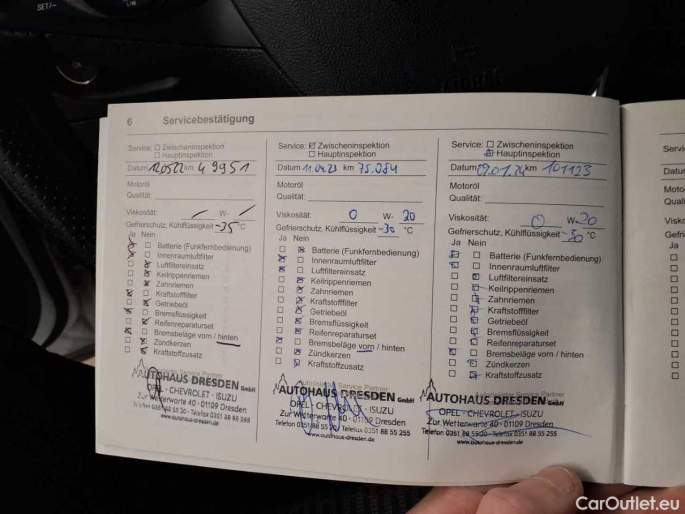 SET/-
6 Servicebestätigung
Service: Zwischeninspektion
Hauptinspektion
Datum 120522 km 49951
Motoröl
Qualität:
Viskosität: / W- /
Gefrierschutz, Kühlflüssigkeit -35 °C
Ja Nein
Batterie (Funkfernbedienung)
Innenraumluftfilter
Luftfiltereinsatz
Keilrippenriemen
Zahnriemen
Kraftstofffilter
Getriebeöl
Bremsflüssigkeit
Reifenreparaturset
Bremsbeläge vorn / hinten
Zündkerzen
Kraftstoffzusatz
Service Partner
AUTOHAUS DRESDEN GmbH
OPEL - CHEVROLET - ISUZU
Zur Wetterwarte 40 - 01109 Dresden
www.autohaus-dresden.de
Service: Zwischeninspektion
Hauptinspektion
Datum 11.04.23 km 75.084
Motoröl
Qualität:
Viskosität: 0 W- 20
Gefrierschutz, Kühlflüssigkeit -30 °C
Ja Nein
Batterie (Funkfernbedienung)
Innenraumluftfilter
Luftfiltereinsatz
Keilrippenriemen
Zahnriemen
Kraftstofffilter
Getriebeöl
Bremsflüssigkeit
Reifenreparaturset
Bremsbeläge vorn / hinten
Zündkerzen
Kraftstoffzusatz
Service Partner
AUTOHAUS DRESDEN GmbH
OPEL - CHEVROLET - ISUZU
Zur Wetterwarte 40 - 01109 Dresden
Telefon 0351 88 55 20 - Telefax 0351 88 55 255
www.autohaus-dresden.de
Service: Zwischeninspektion
Hauptinspektion
Datum 09.01.24 km 101123
Motoröl
Qualität:
Viskosität: 0 W- 20
Gefrierschutz, Kühlflüssigkeit -30 °C
Ja Nein
Batterie (Funkfernbedienung)
Innenraumluftfilter
Luftfiltereinsatz
Keilrippenriemen
Zahnriemen
Kraftstofffilter
Getriebeöl
Bremsflüssigkeit
Reifenreparaturset
Bremsbeläge vorn / hinten
Zündkerzen
Kraftstoffzusatz
AUTOHAUS DRESDEN GmbH
OPEL - CHEVROLET - ISUZU
Zur Wetterwarte 40 - 01109 Dresden
Telefon 0351 88 55 20 - Telefax 0351 88 55 255
www.autohaus-dresden.de
CarOutlet.eu